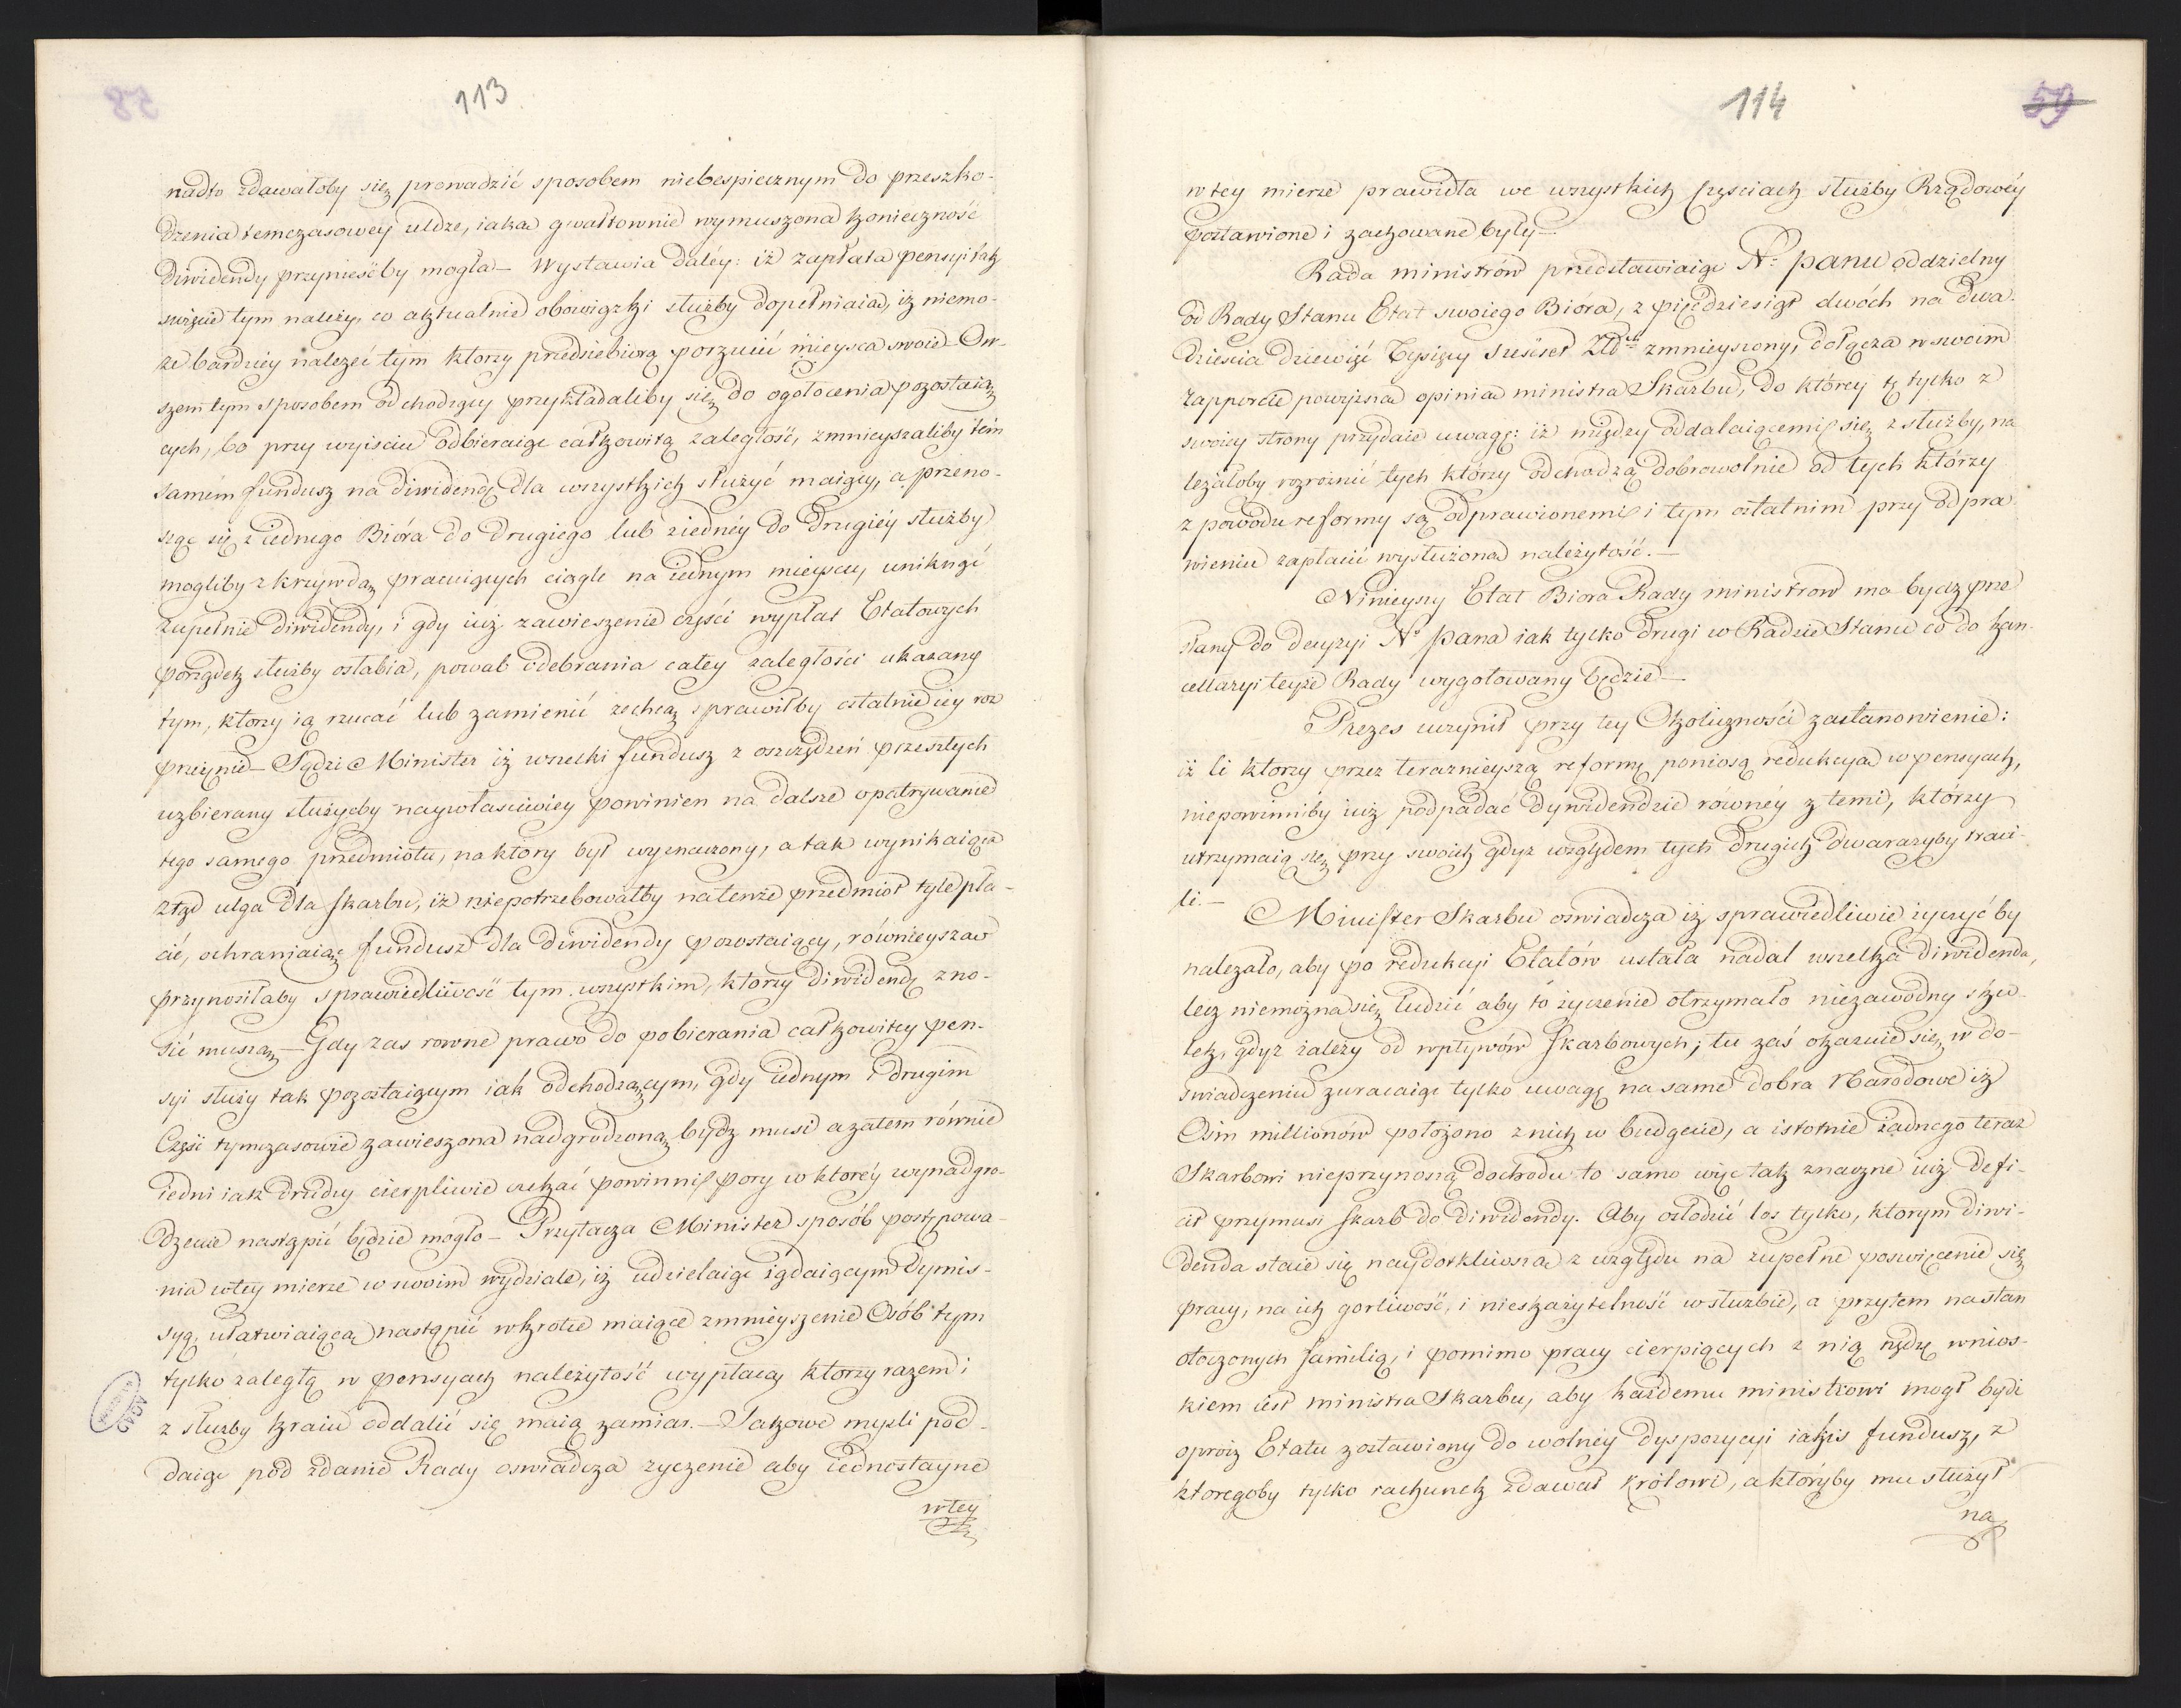 113
nadto zdawałoby się prowadzić sposobem niebespiecznym do przeszko-
dzenia temczasowey uldze, iaką gwałtownie wymuszona konieczność
diwidendy przynieśćby mogła – Wystawia daléy: iż zapłata pensyi tak
swięcie tym należy, co aktualnie obowiązki służby dopełniaią, iż niemo-
że bardziey należeć tym ktorzy przedsiebiorą porzucić mieysca swoie – Ow-
szem tym sposobem odchodzący przykładaliby się do ogołocenia pozostaią
cych, bo przy wyisciu odbieraiąc całkowitą zaległość, zmnieyszaliby tém
samém fundusz na diwidendę dla wszystkich służyć maiący, a przeno-
sząc się z iednego Bióra do drugiego lub ziednéy do drugiéy służby
mogliby z krzywdą pracuiących ciągle na iednym mieyscu, uniknąć
zupełnie diwidendy, i gdy iuż zawieszenie części wypłat Etatowych
porządek służby osłabia, powab odebrania całey zaległości ukazany
tym, ktorzy ią rzucać lub zamienić zechcą sprawiłby ostatnie iey roz
przężenie – Sądzi Minister iż wszelki fundusz z oszczędzeń przeszłych
uzbierany służyćby naywłaściwiey powinien na dalsze opatrywanie
tego samego przedmiotu, na ktory był wyznaczony, a tak wynikaiąca
ztąd ulga dla skarbu, iż niepotrzebowałby natenże przedmiot tyle pła-
cić, ochraniaiąc fundusz dla diwidendy pozostaiący, równieyszą
przynosiłaby sprawiedliwość tym wszystkim, ktorzy diwidendę zno-
sić muszą – Gdy zas rowne prawo do pobierania całkowitey pen-
syi służy tak pozostaiącym iak odchodzącym, gdy iednym i drugim
Część tymczasowie zawieszona nadgrodzoną bydź musi a zatem równie
iedni iak drudzy cierpliwie czekać powinni pory w ktoréy wynadgro-
dzenie nastąpić będzie mogło – Przytacza Minister sposób postępowa-
nia w tey mierze w swoim wydziale, iż udzielaiąc żądaiącym dymis-
syą, ułatwiaiącą nastąpić wkrotce maiące zmnieyszenie Osób tym
tylko zaległą w pensyach należytość wypłaca ktorzy razem i
z służby kraiu oddalić się maią zamiar. – Takowe mysli pod-
daiąc pod zdanie Rady oswiadcza życzenie aby iednostayne
w tey
114
59
w tey mierze prawidła we wszystkich częściach służby Rządowéy
postawione i zachowane były –
Rada ministrów przedstawiaiąc Nº panu oddzielny
od Rady Stanu Etat swoiego Bióra, z pięcdziesiąt dwóch na dwa
dziescia dziewięć Tysięcy sześcset Złd zmnieyszony, dołącza w swoim
rapporcie powyższą opinią ministra Skarbu, do którey tę tylko z
swoiey strony przydaie uwagę: iż między oddalaiącemi się z służby, na
leżałoby rozrożnić tych którzy odchodzą dobrowolnie od tych którzy
z powodu reformy są odprawionemi i tym ostatnim przy odpra
wieniu zapłacić wysłużoną należytość. –
Ninieyszy Etat Biora Rady ministrow ma bydź prze
słany do decyzyi Nº Pana iak tylko drugi w Radzie Stanu co do kan-
cellaryi teyże Rady wygotowany będzie –
Prezes uczynił przy tey Okoliczności zastanowienie:
iż ci ktorzy przez teraznieyszą reformę poniosą redukcyą w pensyach,
niepowinniby iuż podpadać dywidendzie równéy z temi, którzy
utrzymaią się przy swoich gdyż względem tych drugich dwarazyby traci-
li. –
Minister Skarbu oswiadcza iż sprawiedliwie życzyć by
należało, aby po redukcyi Etatów ustała nadal wszelka diwidenda,
lecz niemożna się łudzić aby to życzenie otrzymało niezawodny sku-
tek, gdyż zależy od wpływów Skarbowych; tu zaś okazuie się w do-
świadczeniu zwracaiąc tylko uwagę na same dobra Narodowe iż
Ośm millionów położono z nich w budgecie, a istotnie żadnego teraz
Skarbowi nieprzynoszą dochodu to samo więc tak znaczne iuż defi-
cit przymusi Skarb do diwidendy. Aby osłodzić los tylko, ktorym diwi-
denda staie się naydotkliwszą z względu na zupełne poswięcenie się
pracy, na ich gorliwość, i nieskazytelność w służbie, a przytem na stan
otoczonych familią, i pomimo pracy cierpiących z nią nędzę wnios-
kiem iest ministra Skarbu, aby każdemu ministrowi mogł bydź
oprócz Etatu zostawiony do wolnéy dyspozycyi iakis fundusz, z
ktoregoby tylko rachunek zdawał Królowi, a któryby mu służył
na